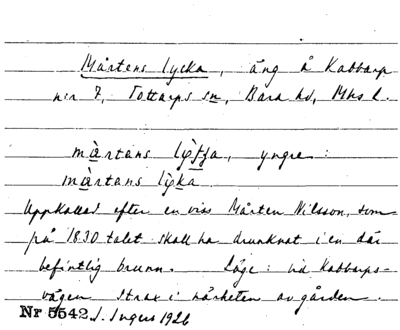 Mårtens lycka, äng å Kabbarp
n:r 7, Tottarps sn, Bara hd, Mhs l.
mårtans lyckja, yngre:
mårtans lycka
Uppkallad efter en viss Mårten Nilsson, som
på 1830 talet skall ha drunknat i en där
befintlig brunn. Läge: vid Kabbarps-
vägen strax i närheten av gården.
Nr 5542. J. Ingers 1926